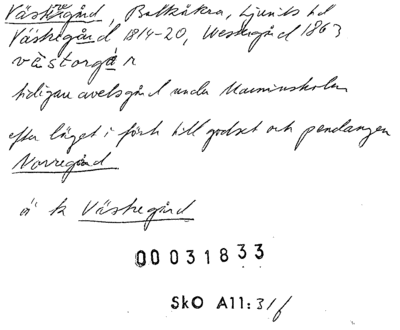 Västregård, Balkåkra, Ljunits hd
Västregård 1814-20, Westergård 1863
västorgår
tidigare avelsgård under Marsvinsholm
efter läget i förh till godset och pendangen
Norregård
ä k Västregård
00031833
SkO All: 31 f